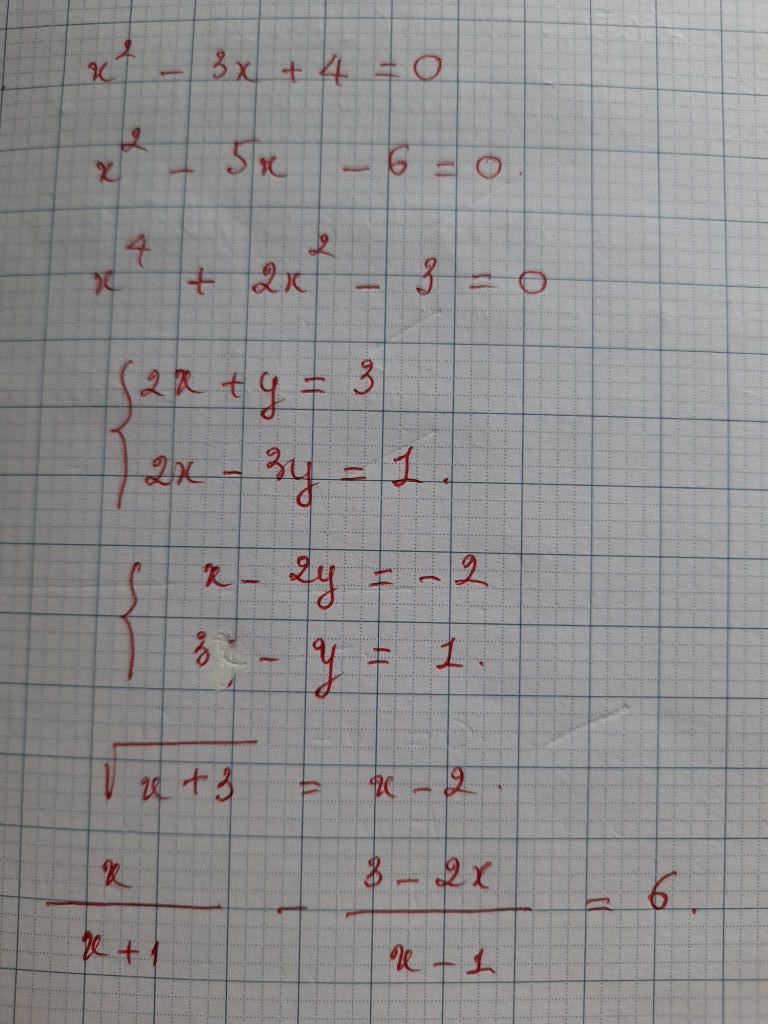 x² - 3x + 4 = 0
x² - 5x - 6 = 0.
x⁴ + 2x² - 3 = 0
{ 2x + y = 3
2x - 3y = 1.
{ x - 2y = -2
3 - y = 1.
√(x + 3) = x - 2.
x/(x + 1) - (3 - 2x)/(x - 1) = 6.